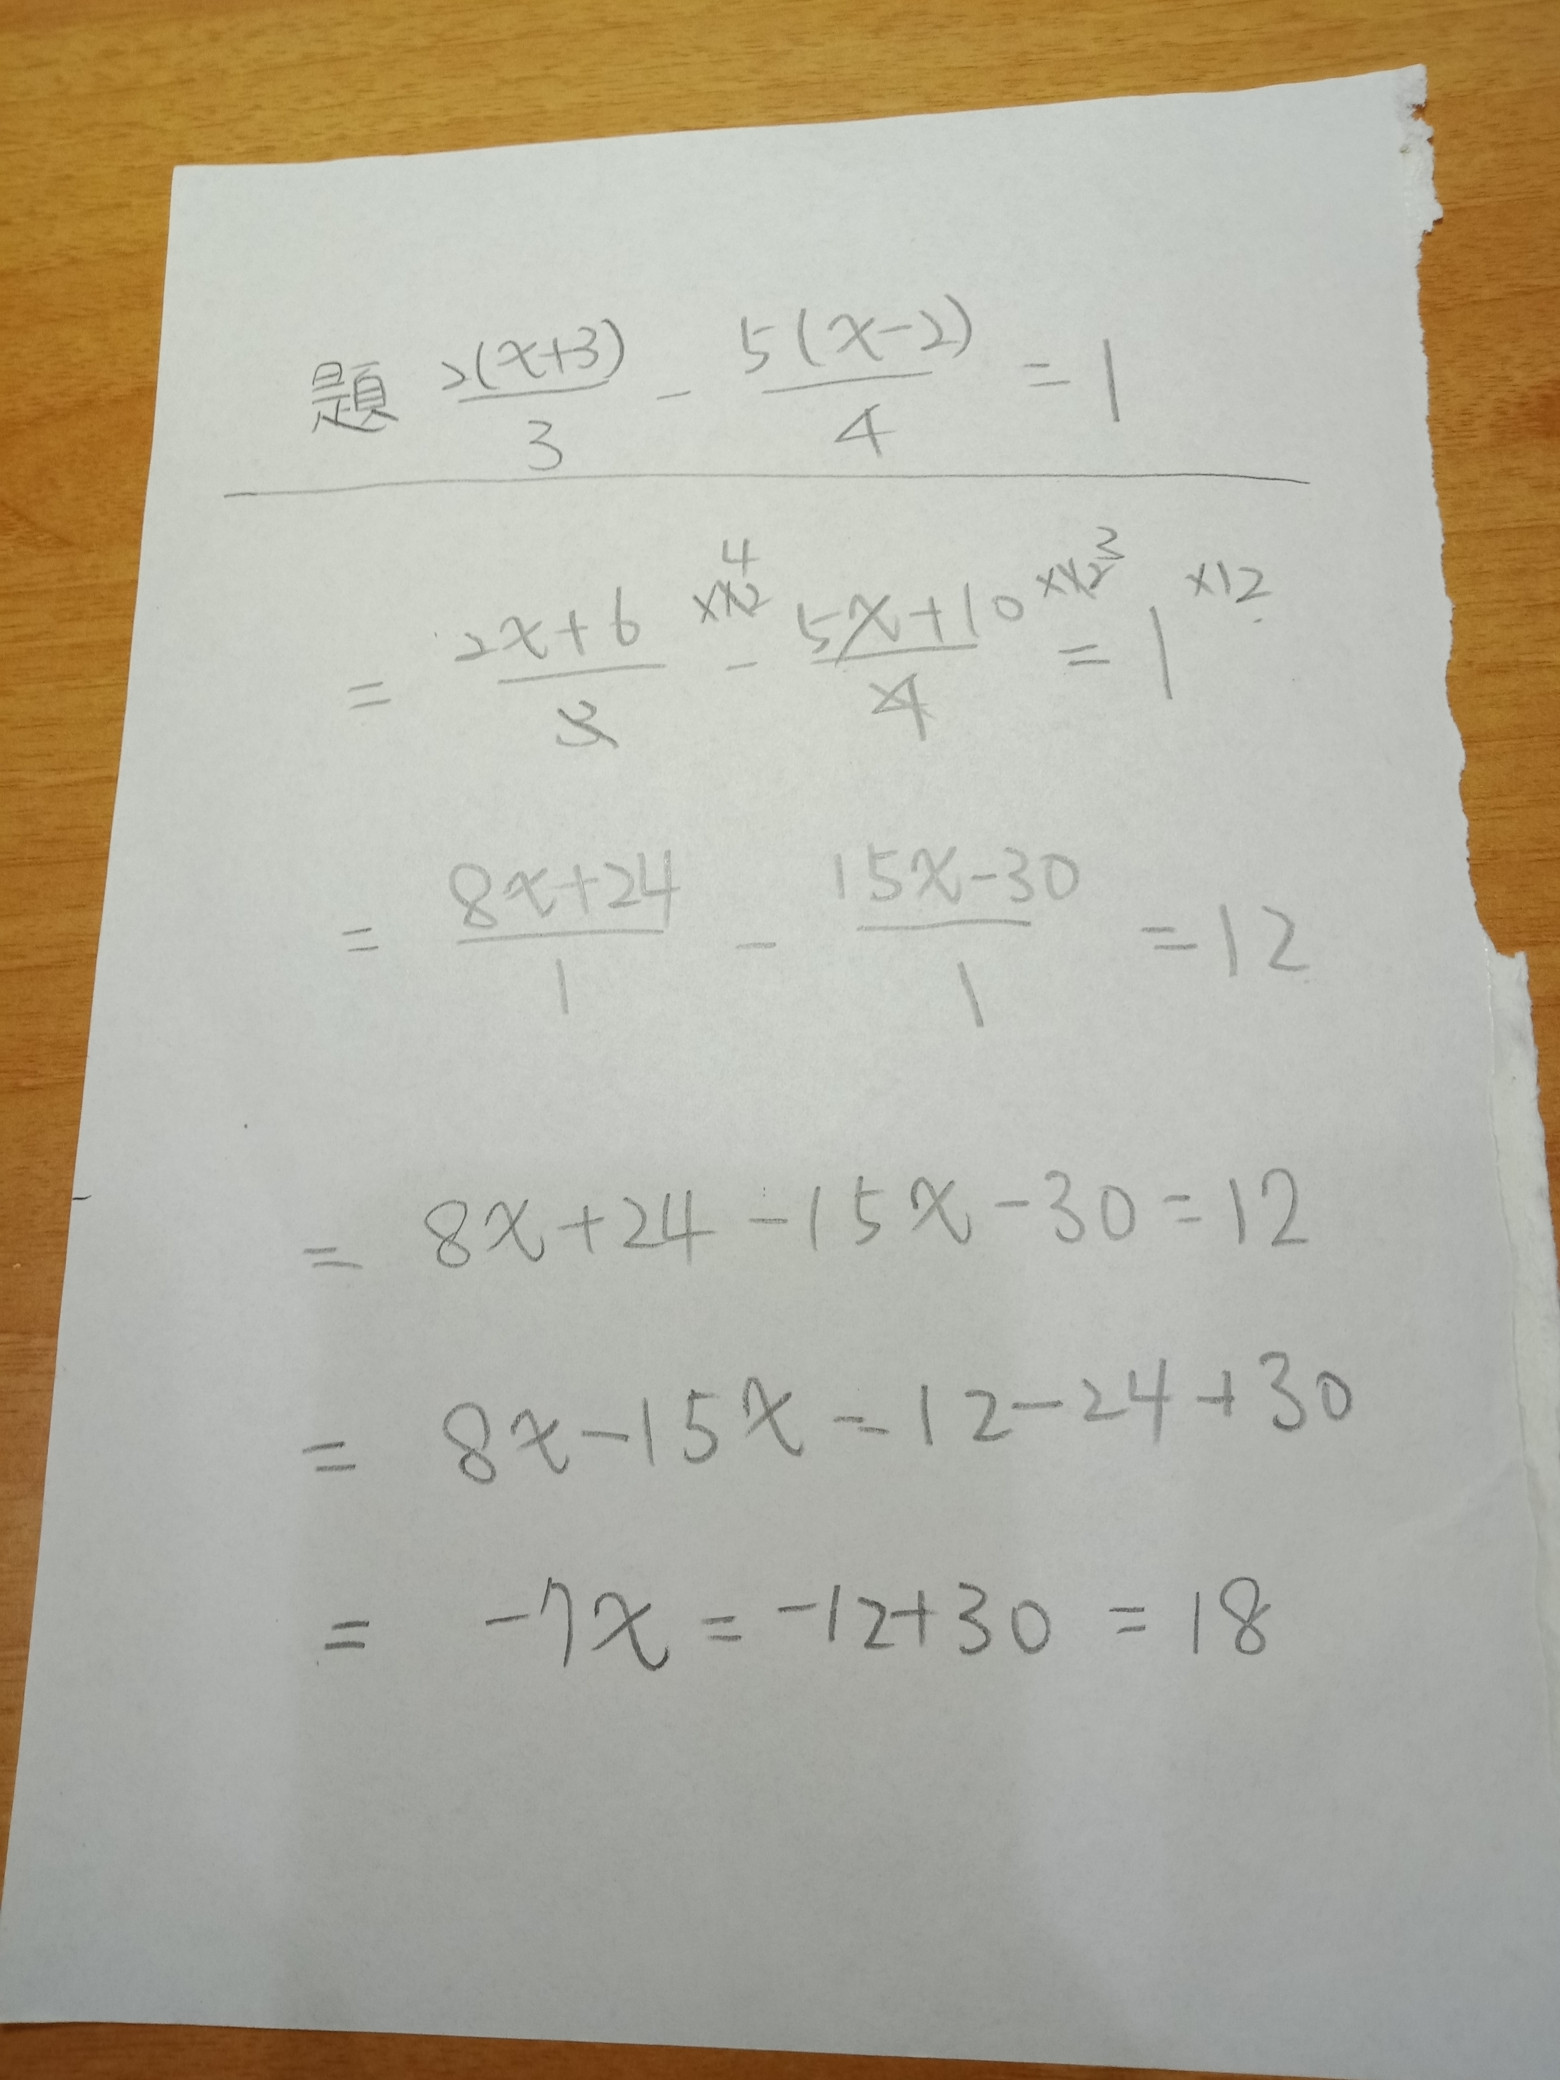 題 2(x+3)/3 - 5(x-2)/4 = 1
= 2x+6/3 ×12 4 - 5x+10/4 ×12 3 = 1 ×12
= 8x+24/1 - 15x-30/1 = 12
= 8x+24-15x-30=12
= 8x-15x=12-24+30
= -7x=-12+30=18